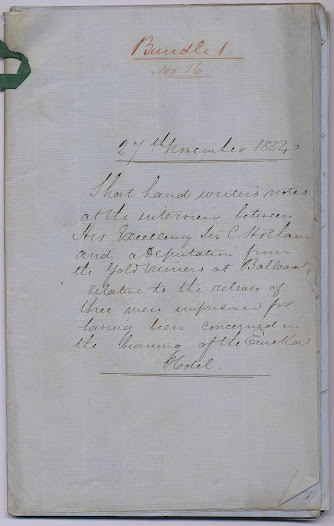 Bundle 1
No 16
27th November 1854
Short hand writer's notes
at the interview between
His Excellency Sir C Hotham
and a Deputation from
the Gold Miners at Ballaarat
relative to the release of
three men imprisoned for
having been concerned in
the burning of the Eureka
Hotel